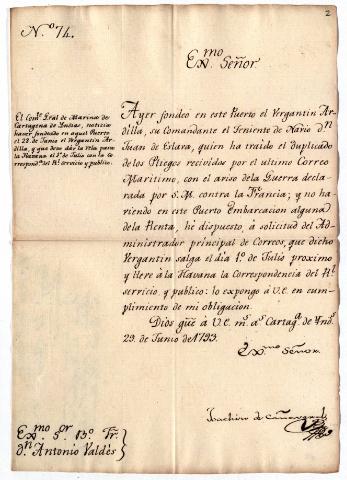 2
N.º 74.
Ex.mo Señor.
El Com.te Gral de Marina de
Cartagena de Yndias, noticia
haver fondeado en aquel Puerto
el 28 de Junio el Vergantin Ar-
dilla, y que deve dár la vela para
la Havana el 1.º de Julio con la Co-
rrespond.a del R.l Servicio y publico.
Ayer fondeó en este Puerto el Vergantin Ar-
dilla, su Comandante el Teniente de Navio d.n
Juan de Eslava, quien ha traido el duplicado
de los Pliegos recividos por el ultimo Correo
Maritimo, con el aviso de la Guerra decla-
rada por S. M. contra la Francia; y no ha-
viendo en este Puerto Embarcacion alguna
de la Renta, hé dispuesto, á solicitud del Ad-
ministrador principal de Correos, que dicho
Vergantin salga el dia 1.º de Julio proximo
y lleve á la Havana la Correspondencia del R.l
servicio, y publico: lo expongo á V. E. en cum-
plimiento de mi obligacion.
Dios gũe á V. E. m.s a.s Cartag.a de Ynd.s
29. de Junio de 1793.
Ex.mo Señor.
Joachin de Cañaveral
Ex.mo S.or B.o Fr.
d.n Antonio Valdés